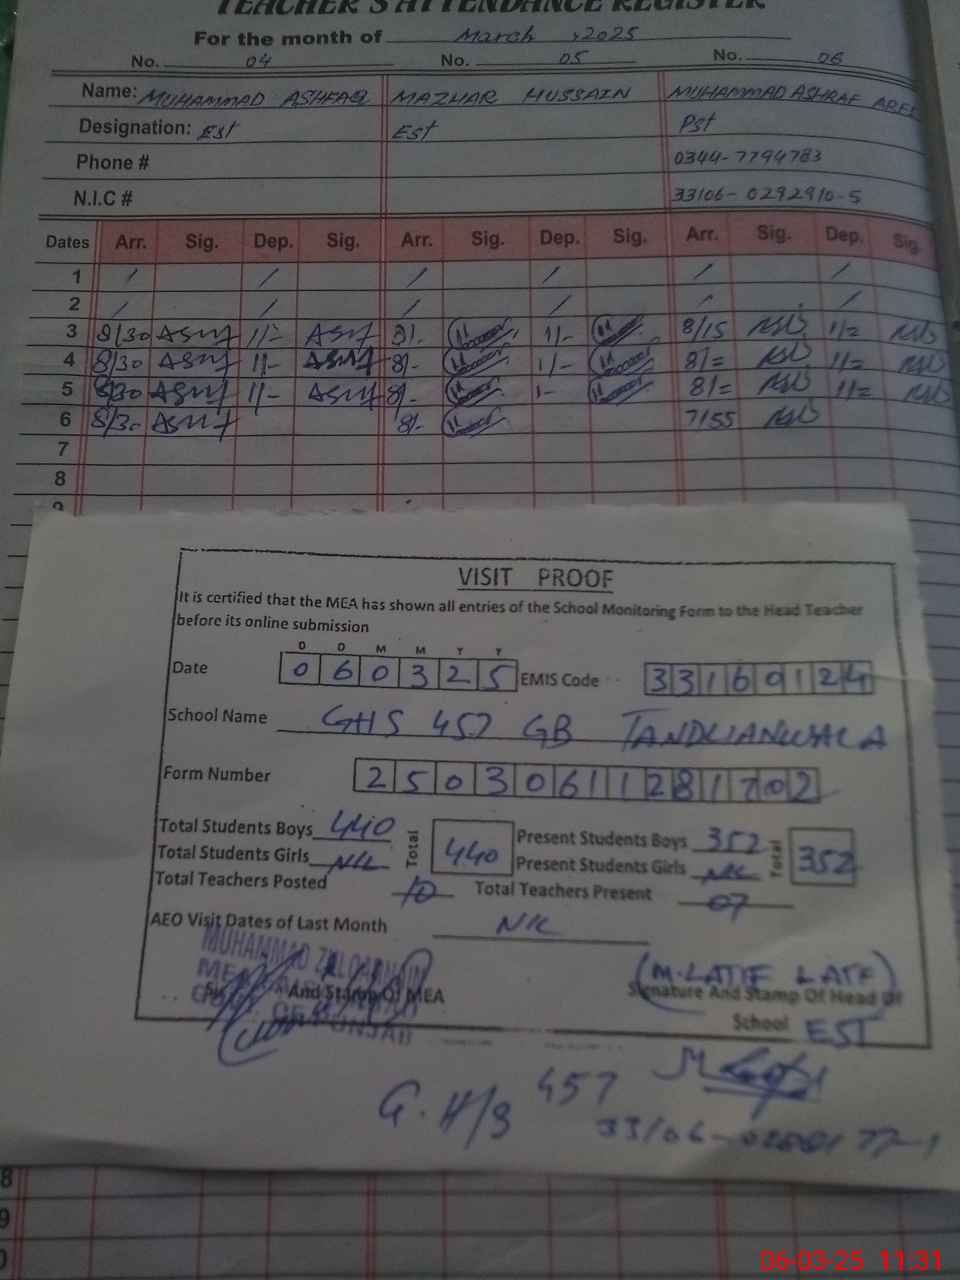 TEACHER'S ATTENDANCE REGISTER
For the month of March ,2025
No. 04 No. 05 No. 06
Name: MUHAMMAD ASHFAQ MAZHAR HUSSAIN MUHAMMAD ASHRAF
Designation: Est Est Pst
Phone # 0344-7794783
N.I.C # 33106-0292910-5
Dates Arr. Sig. Dep. Sig. Arr. Sig. Dep. Sig. Arr. Sig. Dep. Sig.
1 / / / / / /
2 / / / / / /
3 8/30 11/- 8/- 1/- 8/15 11/=
4 8/30 11/- 8/- 1/- 8/= 11/=
5 8/30 11/- 8/- 1- 8/= 11/=
6 8/30 8/- 7/55
7
8
9
VISIT PROOF
It is certified that the MEA has shown all entries of the School Monitoring Form to the Head Teacher
before its online submission
D D M M Y Y
Date 060325 EMIS Code 33160124
School Name GHS 457 GB TANDLIANWALA
Form Number 250306111281702
Total Students Boys 440 Total 440 Present Students Boys 352 Total 352
Total Students Girls NIL Present Students Girls NIL
Total Teachers Posted 10 Total Teachers Present 07
AEO Visit Dates of Last Month NIL
MUHAMMAD
(M. LATIF LATF)
And Stamp Of MEA Signature And Stamp Of Head Of
School EST
OF PUNJAB
G.H/S 457
8
9
0
06-03-25 11:31